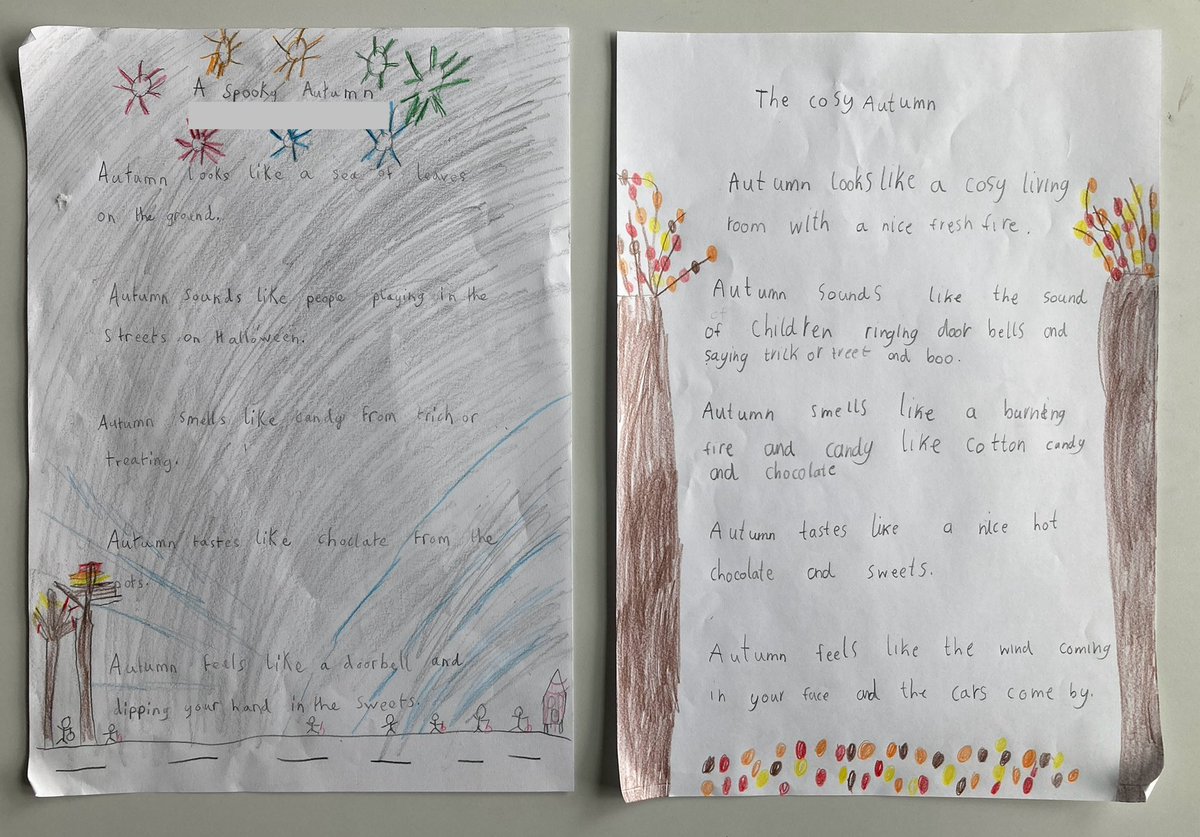 A Spooky Autumn
Autumn looks like a sea of leaves
on the ground.
Autumn sounds like peope playing in the
streets on Halloween.
Autumn smells like candy from trich or
treating.
Autumn tastes like choclate from the
pots.
Autumn feels like a doorbell and
dipping your hand in the sweets.
The cosy Autumn
Autumn looks like a cosy living
room with a nice fresh fire.
Autumn sounds like the sound
of children ringing door bells and
saying trick or treet and boo.
Autumn smells like a burning
fire and candy like cotton candy
and chocolate
Autumn tastes like a nice hot
chocolate and sweets.
Autumn feels like the wind coming
in your face and the cars come by.